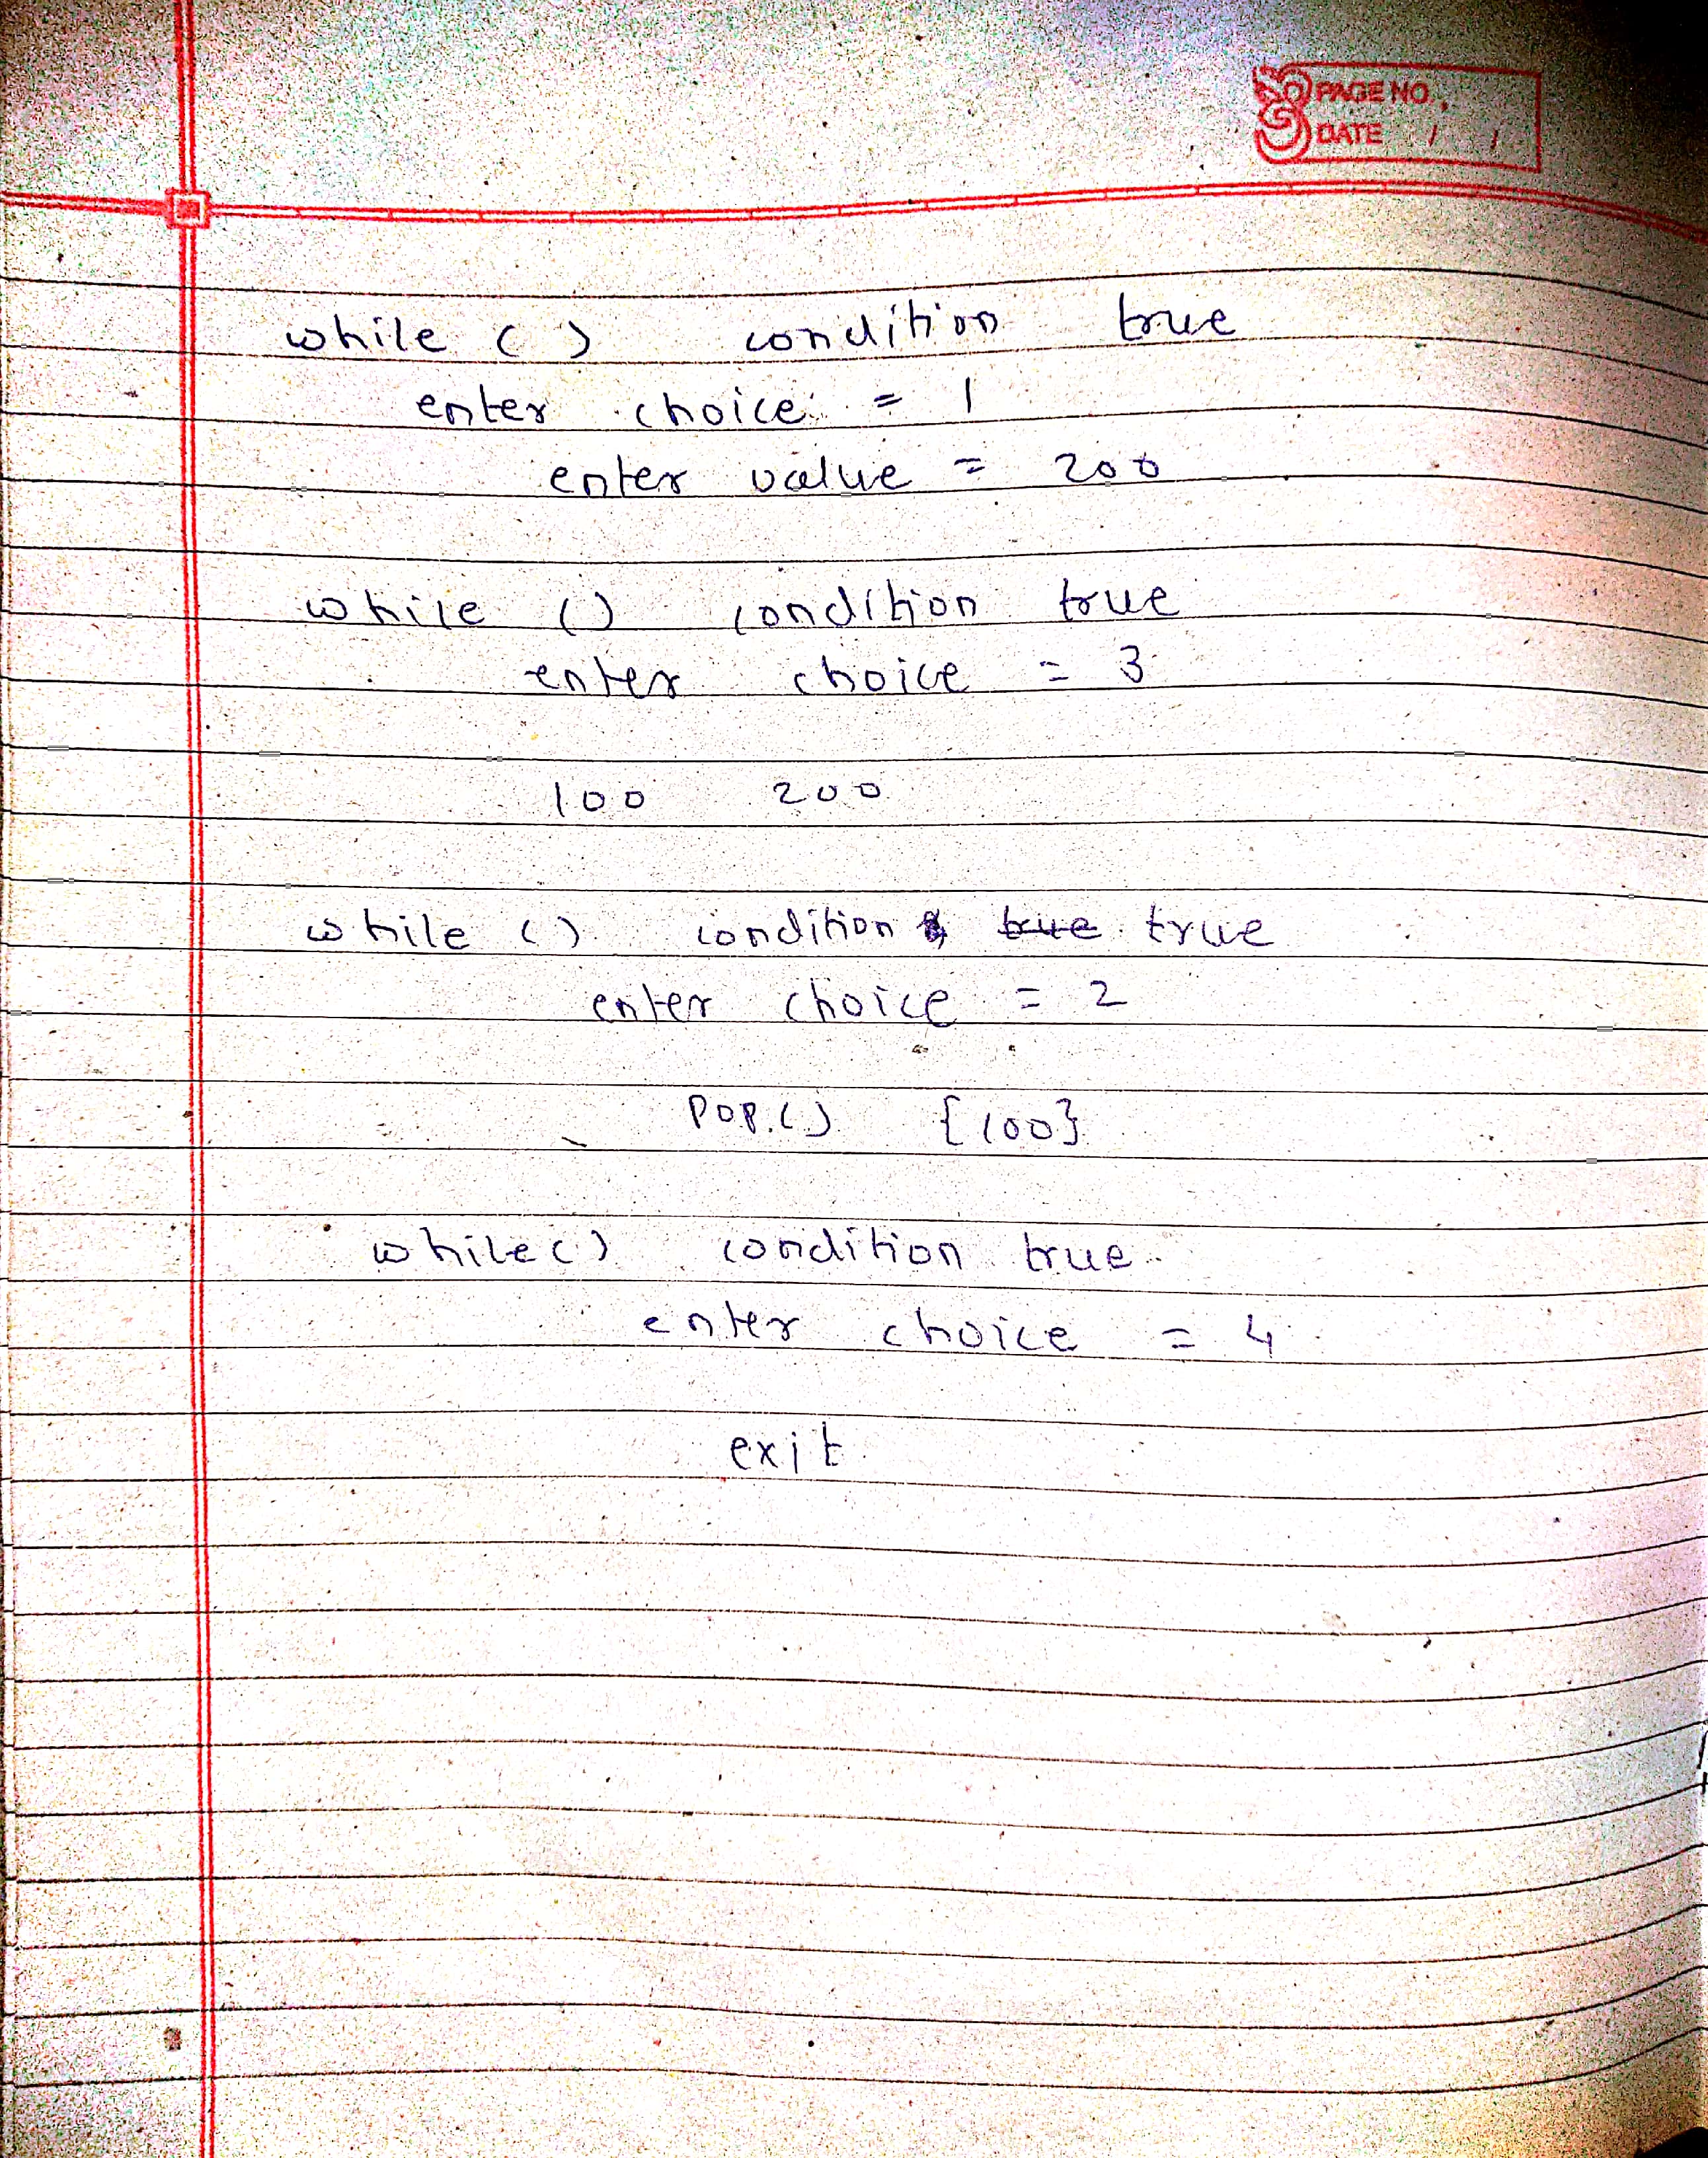 PAGE NO.
DATE / /
while ( ) condition true
enter choice = 1
enter value = 200
while () condition true
enter choice = 3
100 200
while () condition true true
enter choice = 2
POP.() {100}
while() condition true
enter choice = 4
exit